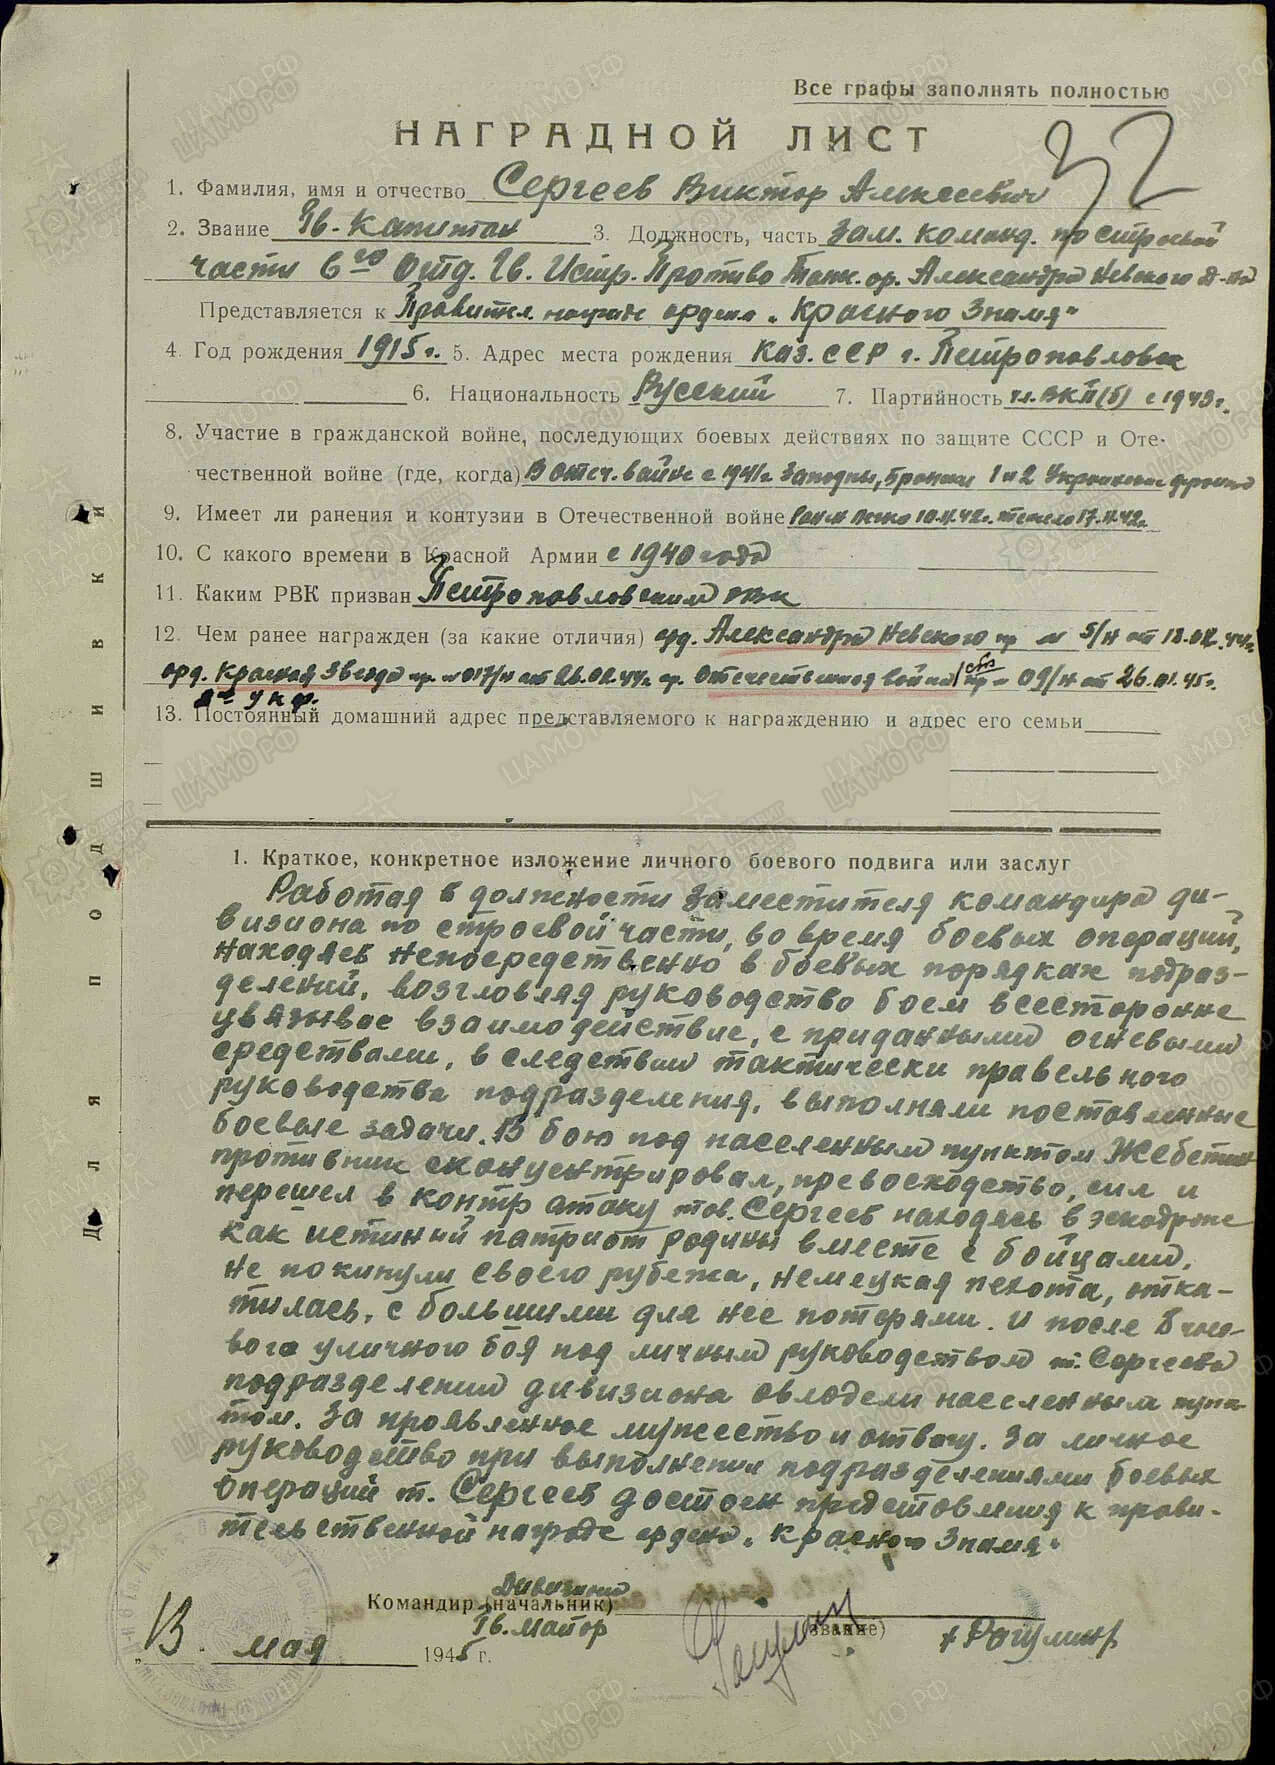 Все графы заполнять полностью
32
НАГРАДНОЙ ЛИСТ
1. Фамилия, имя и отчество Сергеев Виктор Алексеевич
2. Звание Гв. Капитан 3. Должность, часть Зам. команд. по строевой
части 6го Отд. Гв. Истр. Противо Танк. ор. Александра Невского д-на
Представляется к Правител. награде ордена „Красного Знамя"
4. Год рождения 1915 г. 5. Адрес места рождения Каз. ССР г. Петропавловск
6. Национальность Русский 7. Партийность чл. ВКП(б) с 1943 г.
8. Участие в гражданской войне, последующих боевых действиях по защите СССР и Оте-
чественной войне (где, когда) В отеч. войне с 1941 г. Западны, Брянски 1 и 2 Украинские фронта
9. Имеет ли ранения и контузии в Отечественной войне Ранен легко 10.11.42 г. тяжело 17.11.42 г.
10. С какого времени в Красной Армии с 1940 года
11. Каким РВК призван Петропавловским РВК
12. Чем ранее награжден (за какие отличия) орд. Александра Невского пр № 5/н от 18.02.44 г.
орд. Красная Звезда пр. № 017/н от 26.02.44 г. ор. Отечественной войны пр № 09/н от 26.01.45 г.
2го укр ф.
13. Постоянный домашний адрес представляемого к награждению и адрес его семьи
1. Краткое, конкретное изложение личного боевого подвига или заслуг
Работая в должности заместителя командира ди-
визиона по строевой части, во время боевых операций,
находяев непосредственно в боевых порядках подраз-
делений, возгловляя руководство боем всесторонне
увязывое взаимодействие, с приданными огневыми
средствами, в следствии тактически правельного
руководства подразделения, выполняли поставленные
боевые задачи. В бою под населенным пунктом Жебетин
противник сконцентрировал, превосходство, сил и
перешел в контр атаку тов. Сергеев находясь в эскадроне
как истиный патриот родины вместе с бойцами,
не покинули своего рубежа, немецкая пехота, отка-
тилась, с большими для нее потерями. И после 8 часо-
вого уличного боя под личным руководством т. Сергеева
подразделении дивизиона овлодели населенным пунк-
том. За проявленное мужество и отвагу. За личное
руководство при выполнении подразделениями боевых
операций т. Сергеев достоен представления к прави-
тельственной награде ордена „Красного Знамя"
Командир (начальник) Дивизиона
Гв. Майор (звание) /Рагулин/
„13" мая 1945 г.
Для подшивки